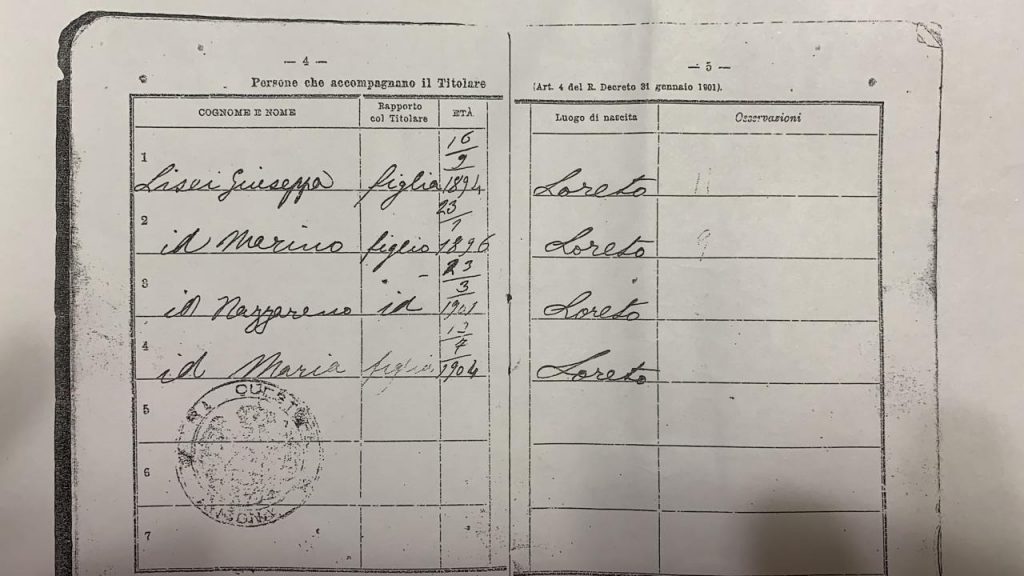 — 4 —
Persone che accompagnano il Titolare
COGNOME E NOME Rapporto col Titolare ETÀ
1 Lisei Giuseppa figlia 16/9 1894
2 id Marino figlio 23/1 1896
3 id Nazzareno id 23/3 1901
4 id Maria figlia 1904
5
6
7
R.A QUEST
— 5 —
(Art. 4 del R. Decreto 31 gennaio 1901).
Luogo di nascita Osservazioni
Loreto 11
Loreto 9
Loreto
Loreto